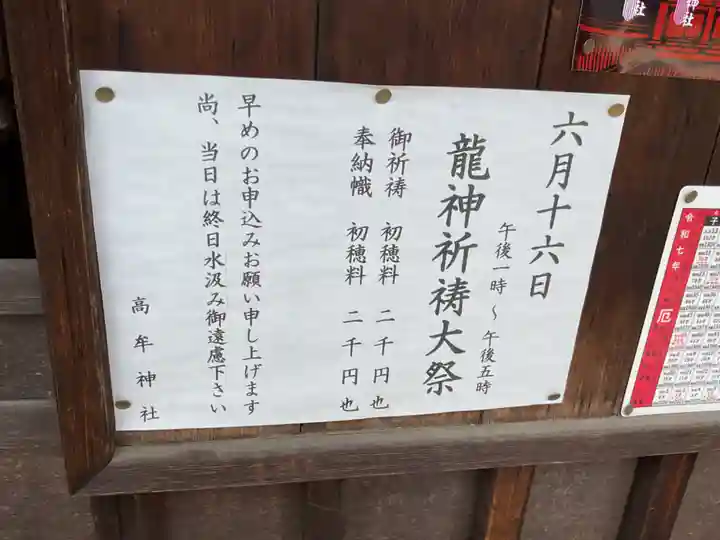 六月十六日
午後一時～午後五時
龍神祈祷大祭
御祈祷 初穂料 二千円也
奉納幟 初穂料 二千円也
早めのお申込みお願い申し上げます
尚、当日は終日水汲み御遠慮下さい
高牟神社
神社
令和七年
厄